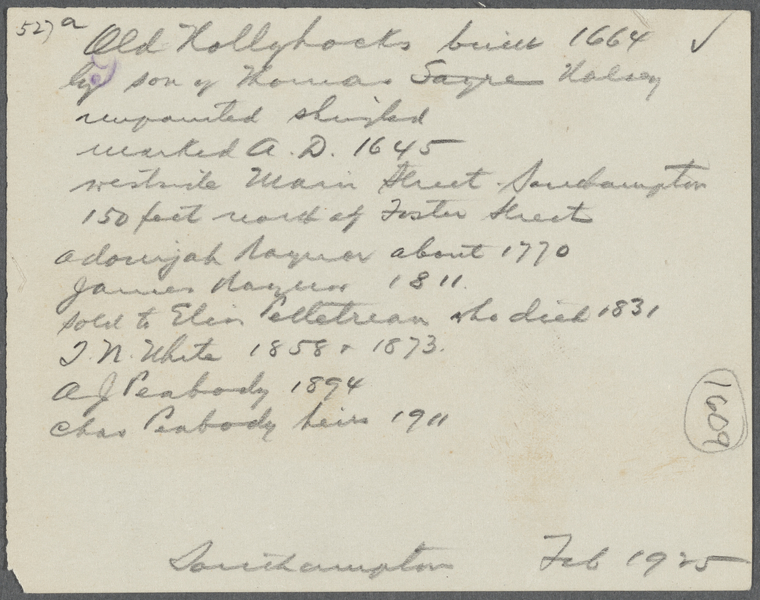 527a
Old Hollyhocks built 1664 ✓
by son of Thomas Sayre Halsey
unpainted shingled
marked A.D. 1645
westside Main Street Southampton
150 feet north of Foster Street
Adonijah Raynor about 1770
James Raynor 1811.
sold to Elias Pelletreau who died 1831
T. N. White 1858 & 1873.
A J Peabody 1894
Chas Peabody heirs 1911
1609
Southampton Feb 1925